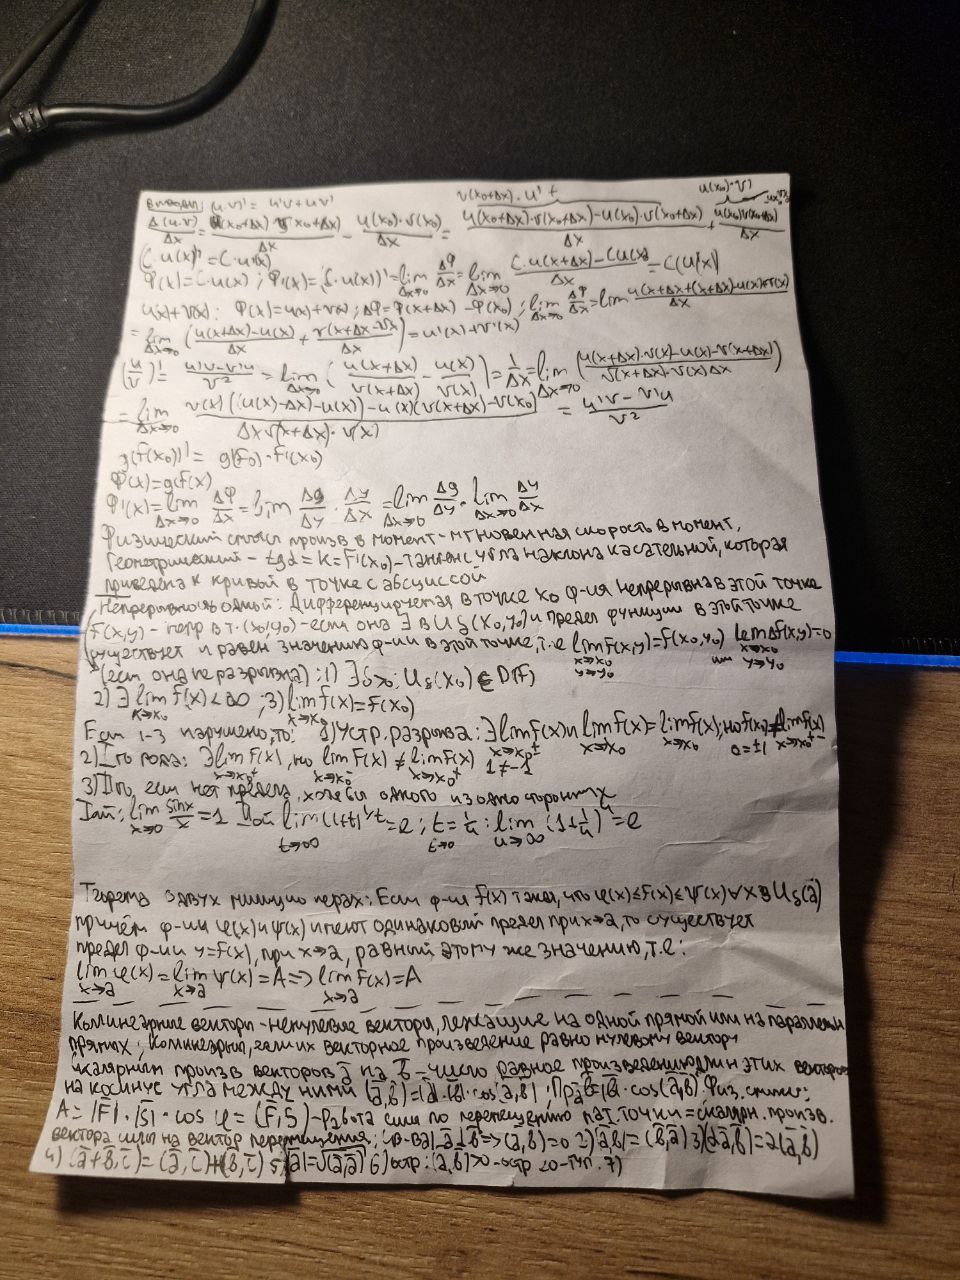 (u·v)' = u'v + uv'
Δ(u·v)/Δx = u(x₀+Δx)·v(x₀+Δx)/Δx - u(x₀)·v(x₀)/Δx = u(x₀+Δx)·v(x₀+Δx)-u(x₀)·v(x₀+Δx)/Δx + u(x₀)v(x₀+Δx)/Δx
(C·u(x))' = C·u'(x)
φ(x)=C·u(x); φ'(x)=(C·u(x))'=lim Δx→0 Δφ/Δx = lim Δx→0 C·u(x+Δx)-Cu(x)/Δx = C(u'(x)
u(x)+v(x): φ(x)=u(x)+v(x); Δφ=φ(x+Δx)-φ(x₀); lim Δx→0 Δφ/Δx = lim
= lim Δx→0 (u(x+Δx)-u(x)/Δx + v(x+Δx-v(x)/Δx) = u'(x)+v'(x)
(u/v)' = u'v-v'u/v² = lim Δx→0 (u(x+Δx)/v(x+Δx) - u(x)/v(x)) = 1/Δx = lim Δx→0 (u(x+Δx)·v(x)-u(x)-v(x+Δx)/v(x+Δx)·v(x)Δx)
= lim Δx→0 v(x)((u(x)-Δx)-u(x))-u(x)(v(x+Δx)-v(x₀)/Δxv(x+Δx)·v(x) = u'v-v'u/v²
g(f(x₀))' = g(f₀)·f'(x₀)
φ(x)=g(f(x)
φ'(x)=lim Δx→0 Δφ/Δx = lim Δg/Δy · Δy/Δx = lim Δx→0 Δg/Δy · lim Δx→0 Δy/Δx
Физический смысл произв в момент - мгновенная скорость в момент,
Геометрический - tgα = k = f'(x₀) - тангенс угла наклона касательной, которая
приведена к кривой в точке с абсциссой
Непрерывность одной: Дифференцируемая в точке x₀ ф-ия непрерывна в этой точке
f(x,y) - непр в т.(x₀/y₀) - если она ∃ в Uδ(x₀,y₀) и предел функции в этой точке
существует и равен значению ф-ии в этой точке, т.е lim x→x₀ y→y₀ f(x,y)=f(x₀,y₀) или lim x→x₀ y→y₀ Δf(x,y)=0
(если она не разрывна): 1) ∃δ>0: Uδ(x₀) ∈ D(f)
2) ∃ lim x→x₀ f(x)<∞; 3) lim x→x₀ f(x)=f(x₀)
Если 1-3 нарушено, то: 1) Устр. разрыва: ∃ lim x→x₀± f(x) и lim x→x₀ f(x) = lim x→x₀ f(x), но f(x₀) ≠ lim x→x₀ f(x) 0=±1
2) I го рода: ∃ lim x→x₀± f(x), но lim x→x₀⁻ f(x) ≠ lim x→x₀⁺ f(x) 1≠-1
3) II го, если нет предела, хотя бы одного из односторонних
Iзам: lim x→0 sinx/x = 1 IIой lim t→∞ (1+t)^1/t = e; t=1/u: lim t→0 u→∞ (1+1/u)^u = e
Теорема о двух милиционерах: Если ф-ия f(x) такая, что φ(x)≤f(x)≤ψ(x) ∀x в Uδ(a)
причём ф-ии φ(x) и ψ(x) имеют одинаковый предел при x→a, то существует
предел ф-ии y=f(x), при x→a, равный этому же значению, т.е:
lim x→a φ(x) = lim x→a ψ(x) = A => lim x→a f(x) = A
Коллинеарные векторы - ненулевые вектора, лежащие на одной прямой или на параллельн
прямых; коллинеарны, если их векторное произведение равно нулевому вектору
скалярным произв векторов a на b - число равное произведению длин этих векторов
на косинус угла между ними (a,b)=|a|·|b|·cos(a,b), Пр_a b=|b|·cos(a,b) Физ. смысл:
A=|F|·|S|·cosφ=(F,S) - работа силы по перемещению мат. точки = скалян. произв.
вектора силы на вектор перемещения; св-ва 1. a⊥b=>(a,b)=0 2)(a,b)=(b,a) 3)(λa,b)=λ(a,b)
4) (a+b,c)=(a,c)+(b,c) 5) |a|=√(a,a) 6) остр: (a,b)>0-остр <0-туп. 7)